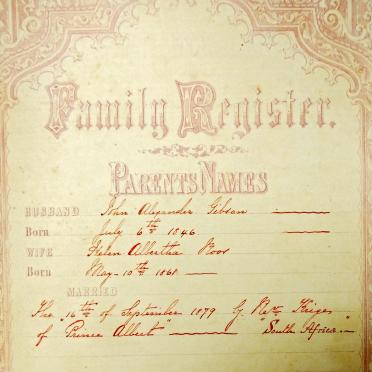 Family Register.
PARENTS NAMES
HUSBAND John Alexander Gibson
Born July 6th 1846
WIFE Helen Albertha Roos
Born May 10th 1861
MARRIED
The 16th of September 1879 G. Revd Kriges
of "Prince Albert" "South Africa"